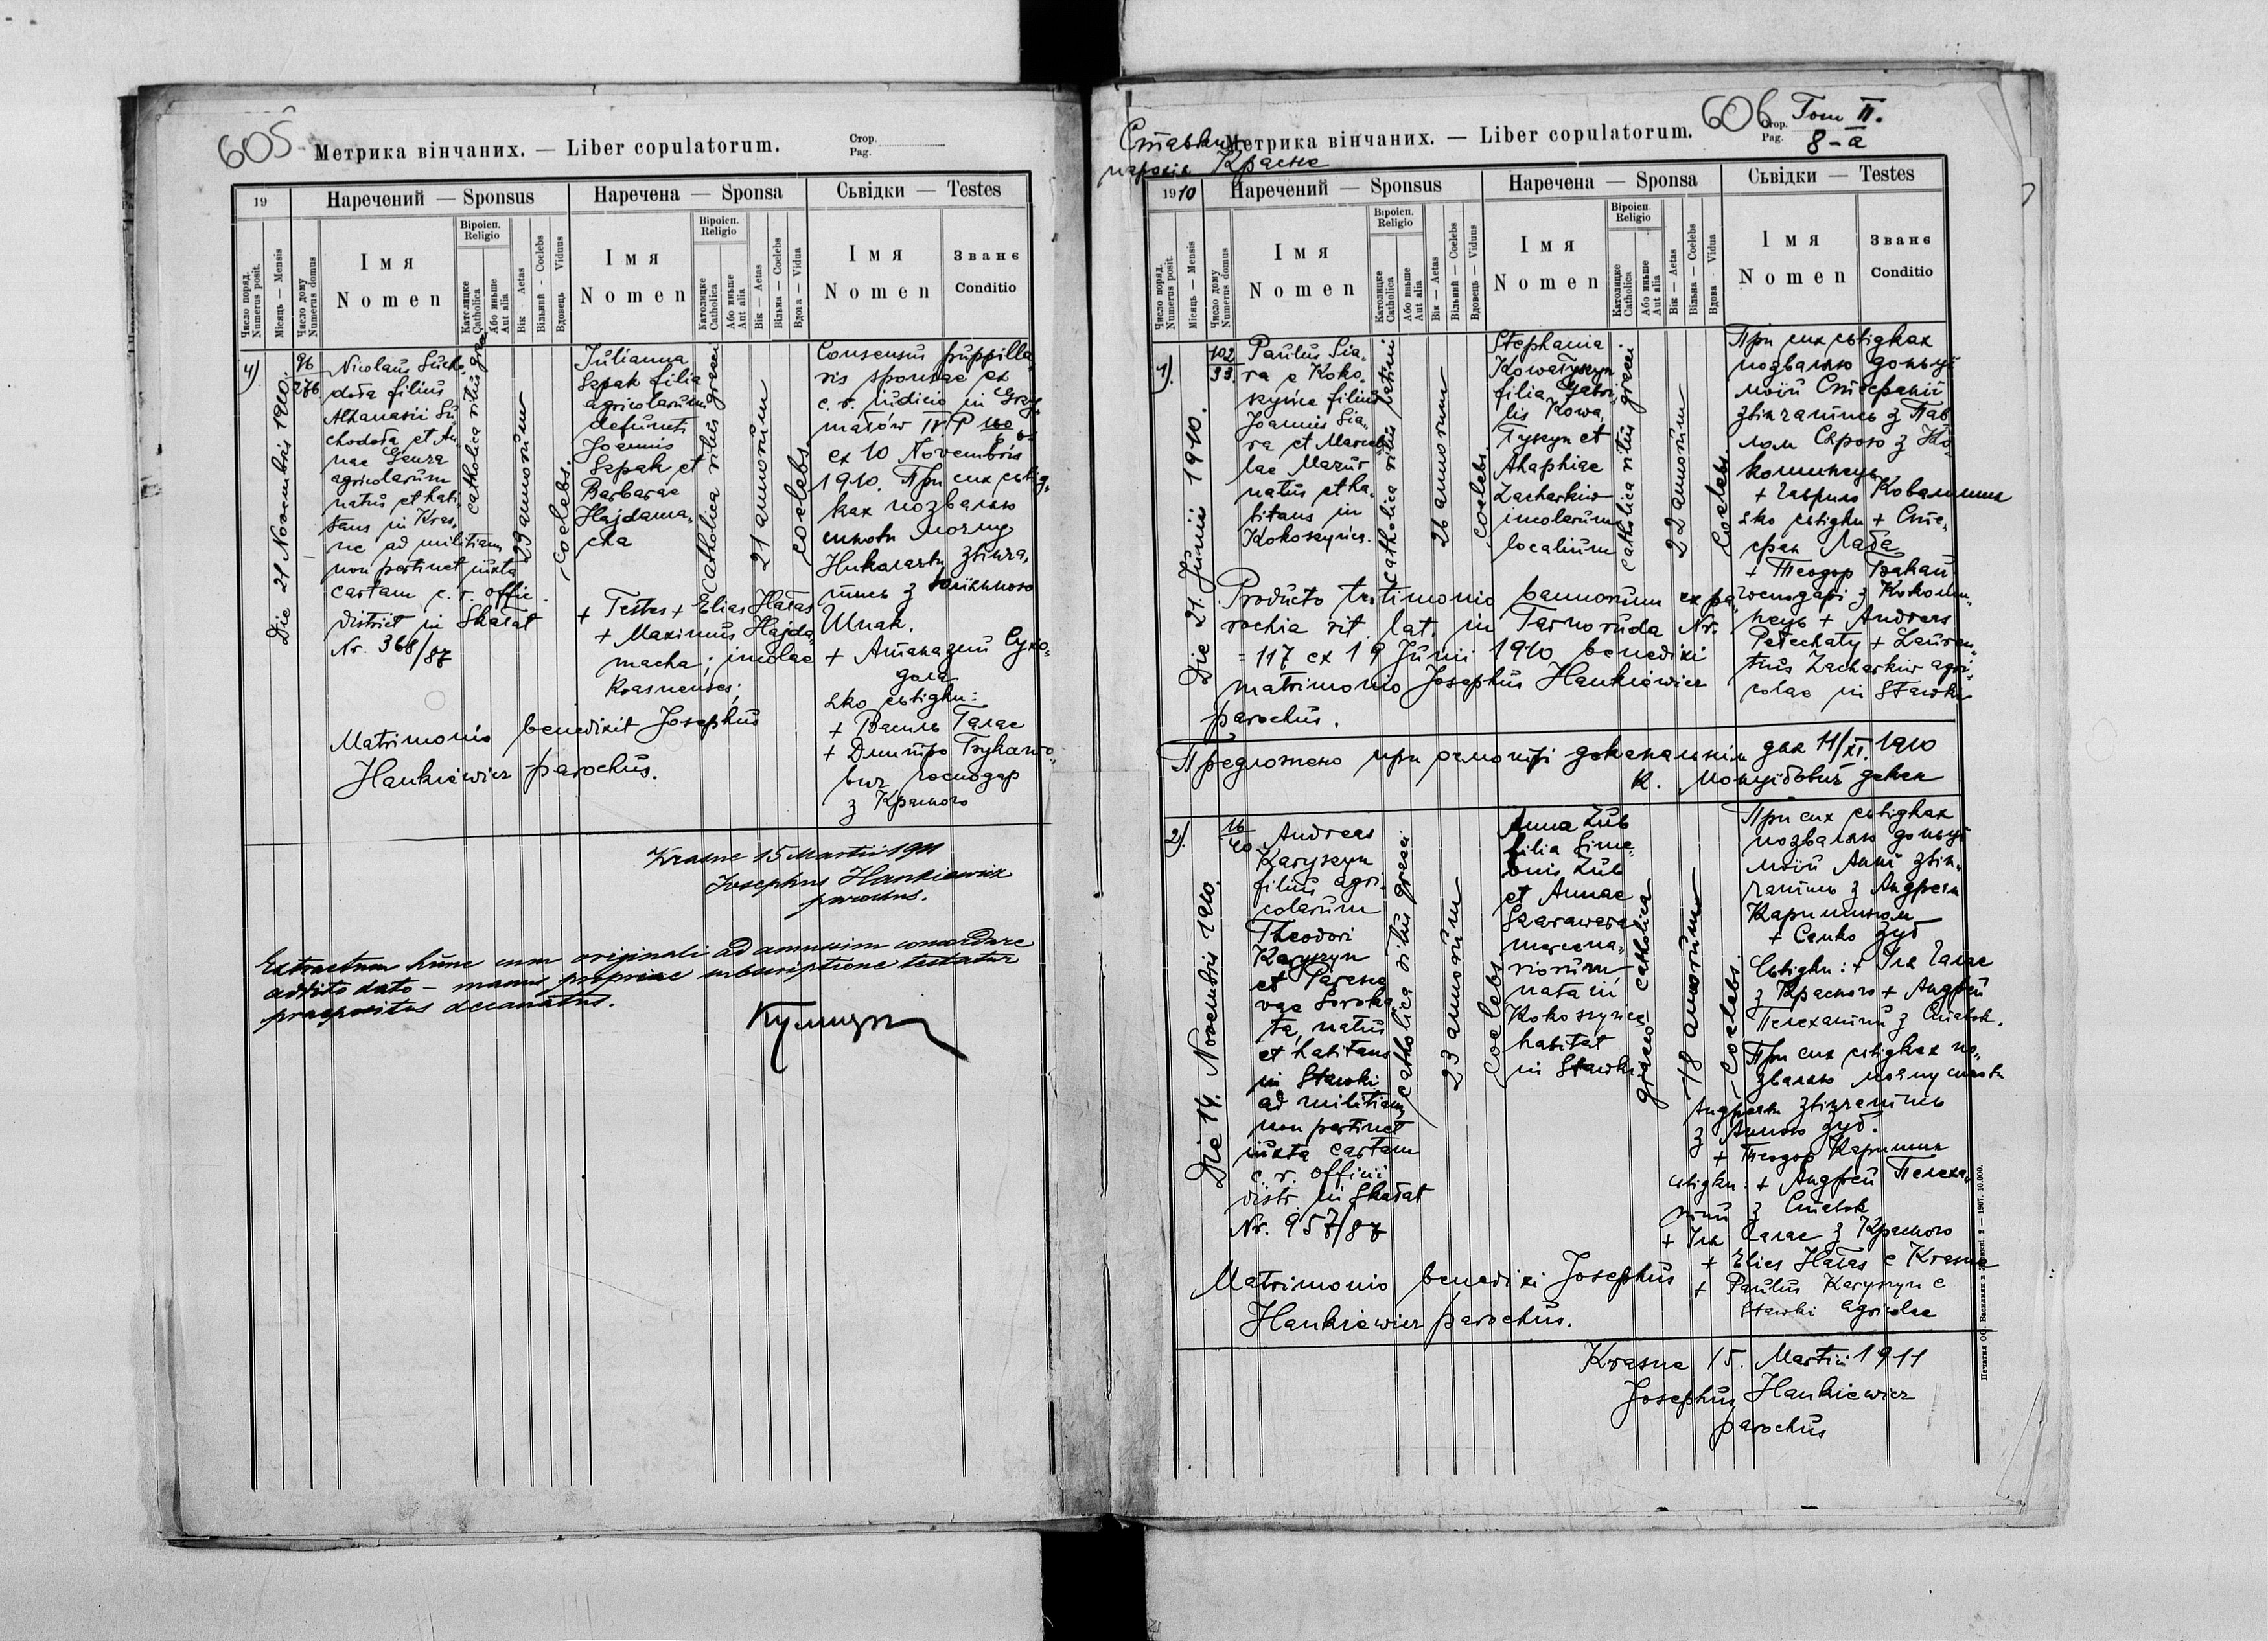 605
Метрика вінчаних. — Liber copulatorum.
Стор.
Pag.
19
Наречений — Sponsus
Наречена — Sponsa
Сьвідки — Testes
Число поряд.
Numerus posit.
Місяць — Mensis
Число дому
Numerus domus
Імя
Nomen
Віроісп.
Religio
Католицке
Catholica
Або иньше
Aut alia
Вік — Aetas
Вільний — Coelebs
Вдовець Viduus
Імя
Nomen
Віроісп.
Religio
Католицке
Catholica
Або иньше
Aut alia
Вік — Aetas
Вільна — Coelebs
Вдова — Vidua
Імя
Nomen
Званє
Conditio
4)
Die 21 Novembris 1910.
96
276
Nicolaus Sucho
doła filius
Athanasii Su
chodoła et An
nae Genza
agricolarum
natus et habi
tans in Kras
ne ad militiam
non pertinet juxta
cartam c. r. offic.
district in Skałat
Nr. 368/87
catholica ritus graeci
23 annorum
coelebs.
Julianna
Szpak filia
agricolarum
defuncti
Joannis
Szpak et
Barbarae
Hajdama,
cha
catholica ritus graeci
21 annorum
coelebs.
+ Testes + Elias Hałas
+ Maximus Hajda
macha; incolae
Krasnenses;
Consensus puppilla
ris sponsae ex
c. r. judicio in Grzy,
małów IV. P 160/6
ex 10 Novembris
1910. При сих сьвід,
ках позваляю
синови мому
Николаєви звінча,
тись з Юліянною
Шпак.
+ Атаназий Сухо,
дола
яко сьвідки:
+ Василь Галас
+ Дмитро
господар
з Красного
Matrimonio benedixit Josephus
Hankiewicz parochus.
Krasne 15 Martii 1911
Josephus Hankiewicz
parochus.
Extractum hunc cum originali ad amussim concordare
addito dato – manus propriae subscriptione testatur
praepositus decanatus.
606
Том II.
Ставки
парохія Красне
Метрика вінчаних. — Liber copulatorum.
Стор.
Pag.
8-a
1910
Наречений — Sponsus
Наречена — Sponsa
Сьвідки — Testes
Число поряд.
Numerus posit.
Місяць — Mensis
Число дому
Numerus domus
Імя
Nomen
Віроісп.
Religio
Католицке
Catholica
Або иньше
Aut alia
Вік — Aetas
Вільний — Coelebs
Вдовець — Viduus
Імя
Nomen
Віроісп.
Religio
Католицке
Catholica
Або иньше
Aut alia
Вік — Aetas
Вільна — Coelebs
Вдова — Vidua
Імя
Nomen
Званє
Conditio
1).
Die 21. Junii 1910.
102
33.
Paulus Sia,
ra e Koko,
szyńce filius
Joannis Sia,
ra et Marcel
lae Mazur
natus et ha,
bitans in
Kokoszyńce.
catholica ritus latini
26 annorum
coelebs.
Stephania
Kowałyszyn
filia Gabri,
lis Kowa,
łyszyn et
Ahaphiae
Zacharkiw
incolarum
localium
catholica ritus graeci.
22 annorum
Coelebs.
При сих сьвідках
позваляю доньці
моїй Стефанії
звінчатись з Пав
лом Сярою з Ко,
кошинець
+ Гаврило Ковалишин
яко сьвідки + Сте,
фан Лаба
+ Теодор
господарі з Кокоши,
нець + Andreas
Pełechaty + Lauren,
tius Zacharkiw agri,
colae in Stawki
Producto testimonio bannorum ex pa,
rochia rit. lat. in Tarnoruda Nr.
= 117 ex 19 Junii 1910 benedixi
matrimonio Josephus Hankiewicz
parochus.
Предложено при осмотрі деканальнім дня 11/XI. 1910
К. декан
2).
Die 14. Novembris 1910.
16
40
Andreas
Karyszyn
filius agri,
colarum
Theodori
Karyszyn
et Parasce
vae Soroka
ta, natus
et habitans
in Stawki
ad militiam
non pertinet
juxta cartam
c. r. officii
distr. in Skałat
Nr. 957/87
catholica ritus graeci
23 annorum
Coelebs.
Anna Zub
filia Sime,
onis Zub
et Annae
Szarawara
mercena,
riorum
nata in
Kokoszyńce
habitat
in Stawki
graeco catholica
18 annorum
Coelebs.
При сих сьвідках
позваляю доньці
моїй Анні звін,
чатись з Андреєм
Каришином
+ Сенко Зуб
Сьвідки: + Іля Галас
з Красного + Андрей
Пелехатий з Ставок.
При сих сьвідках по,
зваляю мойму синови
Андреєви звінчатись
з Анною Зуб.
+ Теодор Каришин
сьвідки: + Андрей Пелеха,
тий з Ставок
+ Іля Галас з Красного
+ Elias Hałas e Krasne
+ Paulus Karyszyn e
Stawki agricolae
Matrimonio benedixi Josephus
Hankiewicz parochus.
Krasne 15. Martii 1911
Josephus Hankiewicz
parochus
Печатня ОО. Василиян в Жовкві. 2 — 1907. 10.000.